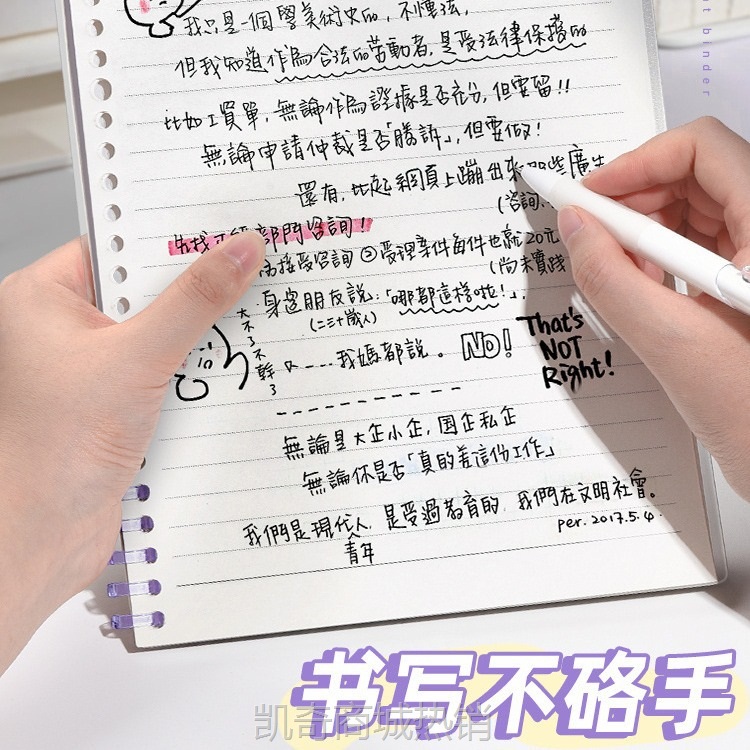 我只是一個學美術史的, 不懂法,
但我知道作為合法的勞動者, 是受法律保護的
比如工資單, 無論作為證據是否充分, 但要留!!
無論申請仲裁是否「勝訴」, 但要做!
還有, 比起網頁上蹦出來那些廣告
(咨詢
先找 部門咨詢!
接受咨詢 ② 受理案件每件也就20元
(尚未實踐
身邊朋友說:「哪都這樣啦!」.
(二三十歲人)
大不了不幹了
又....我媽都說。 NO!
That's
NOT
Right!
無論是大企小企, 国企私企
無論你是否「真的差這份工作」
我們是現代人, 是受過教育的, 我們在文明社會。
青年
per. 2017.5.4.
it binder
书写不硌手
凯奇商城热销